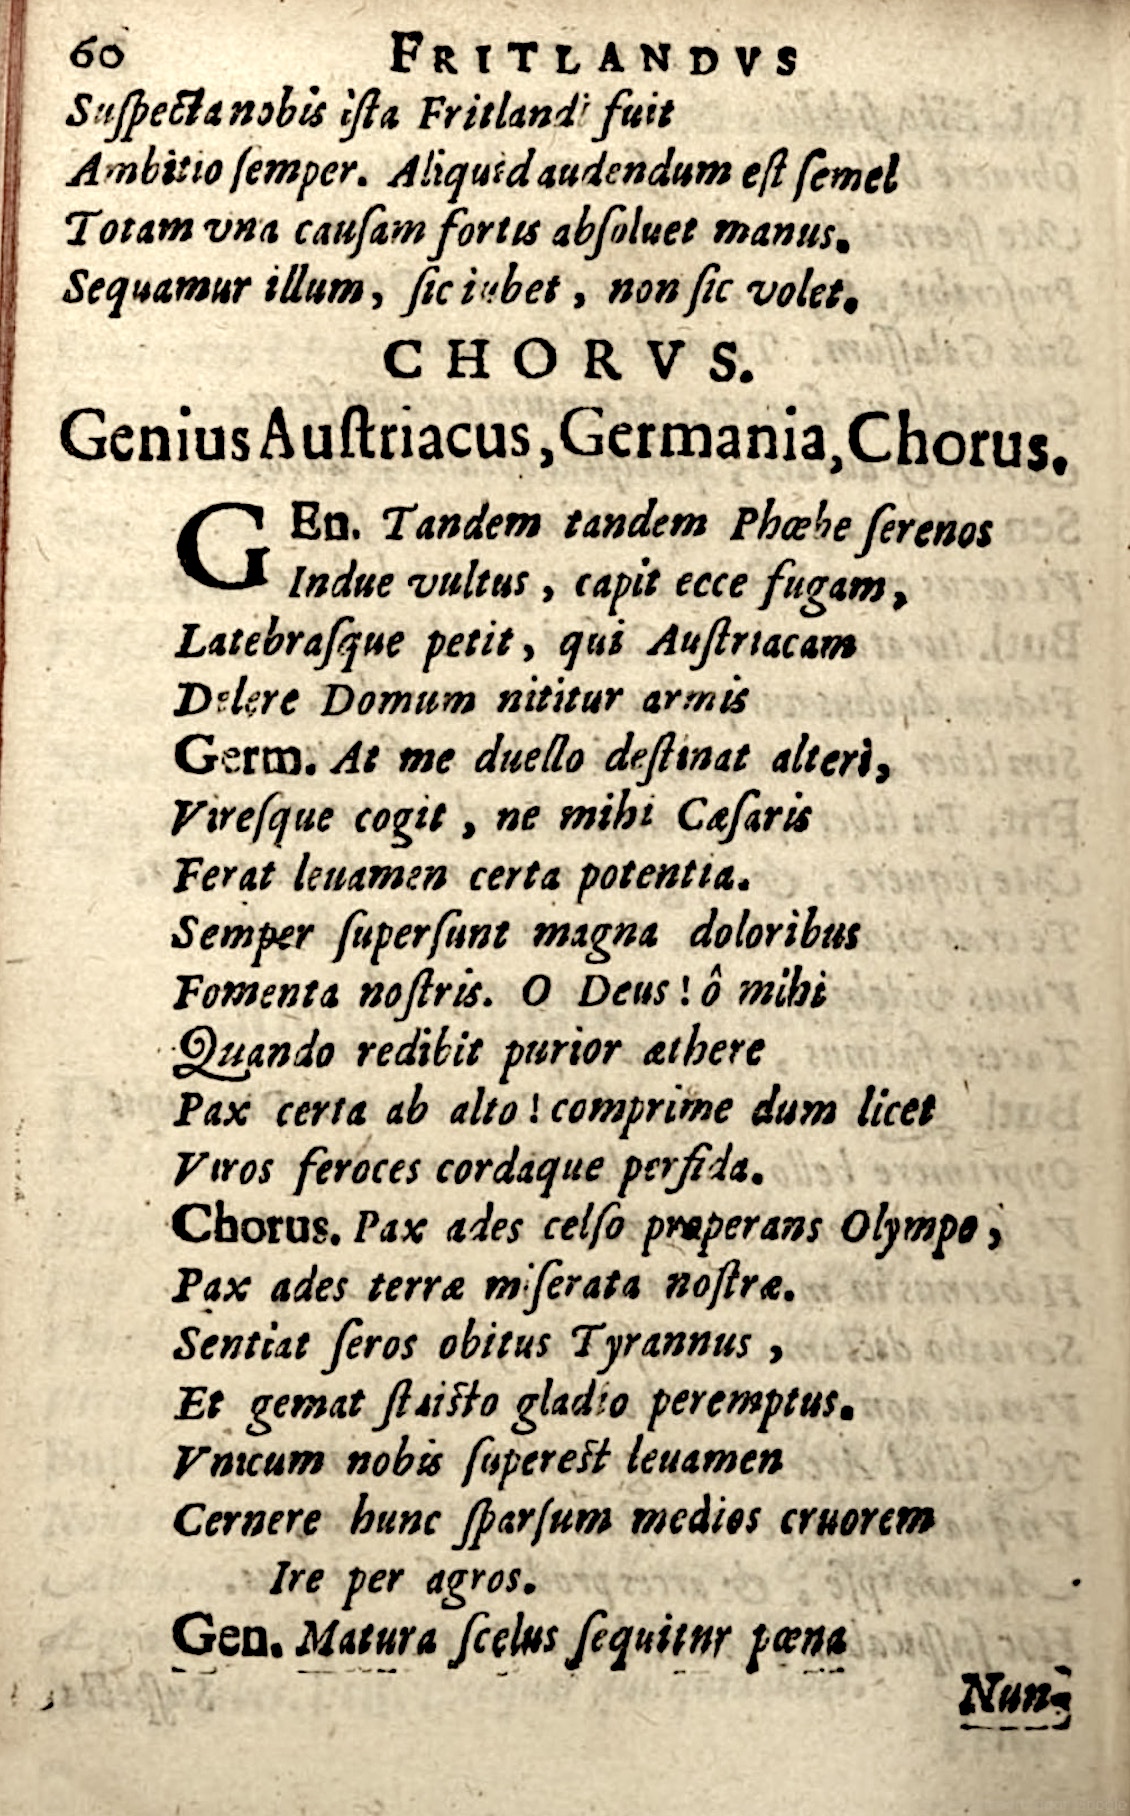 60 FRITLANDVS
Suſpecta nobis iſta Fritlandi fuit
Ambitio ſemper. Aliquid audendum eſt ſemel
Totam vna cauſam fortis abſoluet manus.
Sequamur illum, ſic iubet, non ſic volet.
CHORVS.
Genius Auſtriacus, Germania, Chorus.
GEn. Tandem tandem Phœbe ſerenos
Indue vultus, capit ecce fugam,
Latebraſque petit, qui Auſtriacam
Delere Domum nititur armis
Germ. At me duello deſtinat alteri,
Vireſque cogit, ne mihi Cæſaris
Ferat leuamen certa potentia.
Semper ſuperſunt magna doloribus
Fomenta noſtris. O Deus! ô mihi
Quando redibit purior æthere
Pax certa ab alto! comprime dum licet
Viros feroces cordaque perfida.
Chorus. Pax ades celſo properans Olympo,
Pax ades terræ miſerata noſtræ.
Sentiat ſeros obitus Tyrannus,
Et gemat ſtricto gladio peremptus.
Vnicum nobis ſupereſt leuamen
Cernere hunc ſparſum medios cruorem
Ire per agros.
Gen. Matura ſcelus ſequitur pœna
Nun-